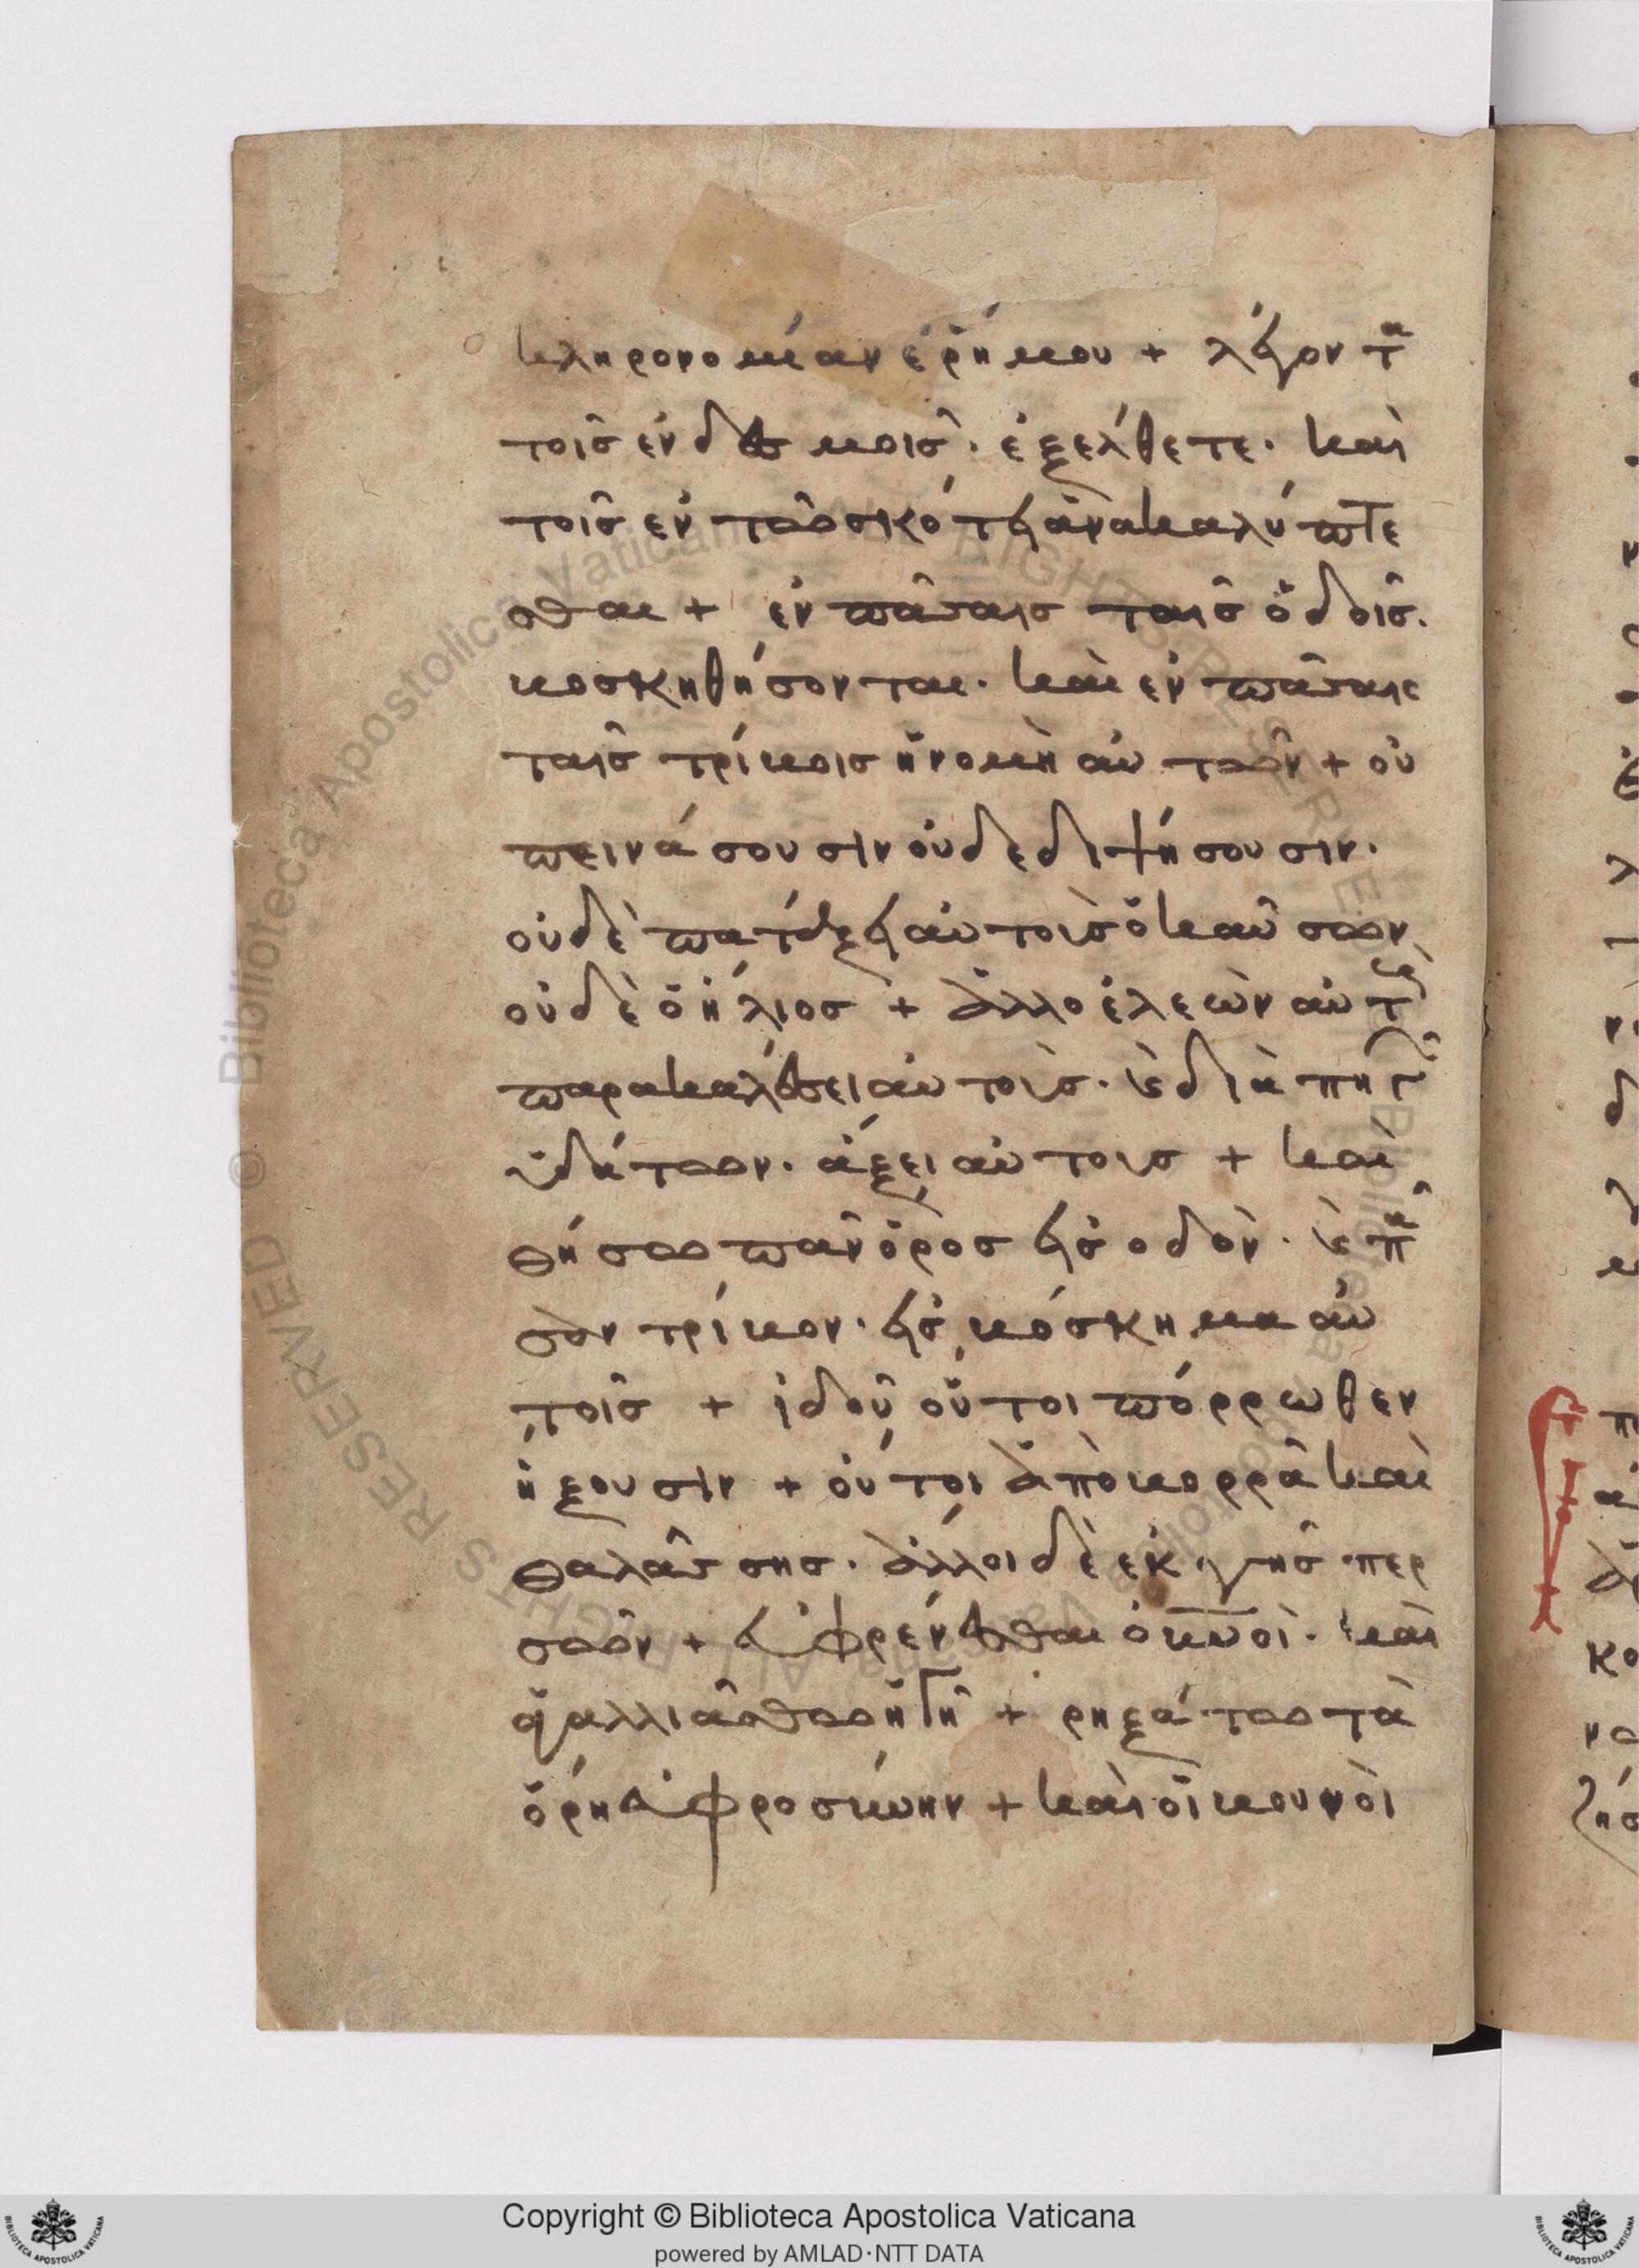 κληρονομίαν ἐρήμου + λέγοντα
τοῖς ἐν δεσμοῖς· ἐξέλθετε· καὶ
τοῖς ἐν τῶ σκότει ἀνακαλύπτε
σθαι + ἐν πάσαις ταῖς ὁδοῖς·
βοσκηθήσονται· καὶ ἐν πάσαις
ταῖς τρίβοις ἡ νομὴ αὐτῶν + οὐ
πεινάσουσιν οὐδὲ διψήσουσιν·
οὐδὲ πατάξει αὐτοὺς ὁ καύσων
οὐδὲ ὁ ἥλιος + ἀλλ ὁ ἐλεῶν αὐτοὺς
παρακαλέσει αὐτοὺς· καὶ διὰ πηγῶν
ὑδάτων· ἄξει αὐτοὺς + καὶ
θήσω πᾶν ὄρος εἰς ὁδὸν· καὶ πᾶ
σαν τρίβον· εἰς βόσκημα αὐ
τοῖς + ἰδοὺ οὗτοι πόρρωθεν
ἥξουσιν + οὗτοι ἀπὸ βορρᾶ καὶ
θαλάσσης· ἄλλοι δὲ ἐκ γῆς περ
σῶν + εὐφρένεσθαι οὐνοὶ· καὶ
ἀγαλλιάσθω ἡ γῆ + ρηξάτω τὰ
ὄρη εὐφροσύνην + καὶ οἱ βουνοὶ
Copyright © Biblioteca Apostolica Vaticana
powered by AMLAD·NTT DATA